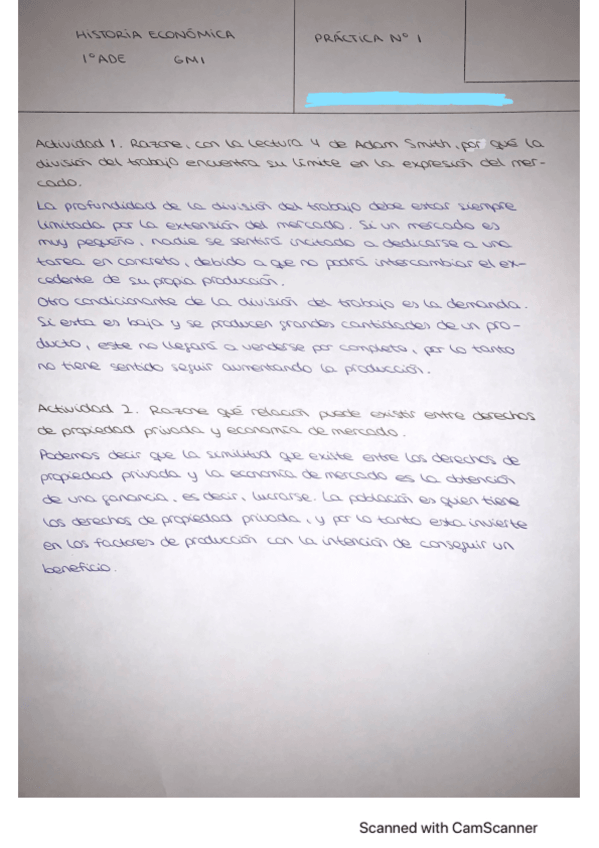 HISTORIA ECONÓMICA
1º ADE GM1
PRÁCTICA Nº 1
Actividad 1. Razone, con la lectura 4 de Adam Smith, por qué la
división del trabajo encuentra su límite en la expresión del mer-
cado.
La profundidad de la división del trabajo debe estar siempre
limitada por la extensión del mercado. Si un mercado es
muy pequeño, nadie se sentirá incitado a dedicarse a una
tarea en concreto, debido a que no podrá intercambiar el ex-
cedente de su propia producción.
Otro condicionante de la división del trabajo es la demanda.
Si esta es baja y se producen grandes cantidades de un pro-
ducto, este no llegará a venderse por completo, por lo tanto
no tiene sentido seguir aumentando la producción.
Actividad 2. Razone qué relación puede existir entre derechos
de propiedad privada y economía de mercado.
Podemos decir que la similitud que existe entre los derechos de
propiedad privada y la economía de mercado es la obtención
de una ganancia, es decir, lucrarse. La población es quien tiene
los derechos de propiedad privada, y por lo tanto esta invierte
en los factores de producción con la intención de conseguir un
beneficio.
Scanned with CamScanner